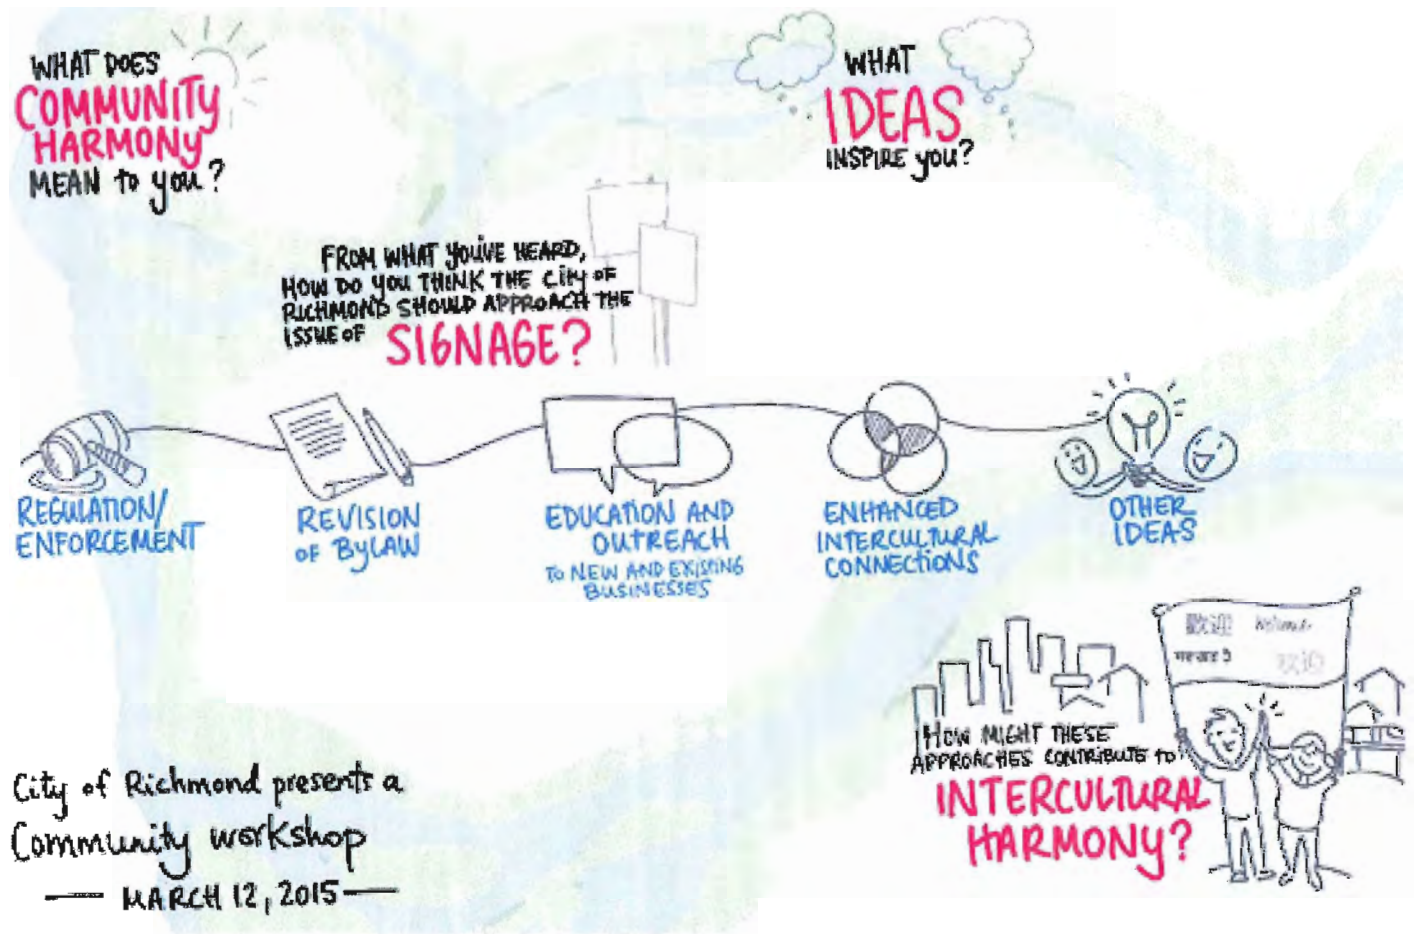 WHAT DOES
COMMUNITY
HARMONY
MEAN to you?
WHAT
IDEAS
INSPIRE you?
FROM WHAT YOU'VE HEARD,
HOW DO YOU THINK THE CITY OF
RICHMOND SHOULD APPROACH THE
ISSUE OF SIGNAGE?
REGULATION/
ENFORCEMENT
REVISION
OF BYLAW
EDUCATION AND
OUTREACH
TO NEW AND EXISTING
BUSINESSES
ENHANCED
INTERCULTURAL
CONNECTIONS
OTHER
IDEAS
歡迎 Welcome
欢迎
HOW MIGHT THESE
APPROACHES CONTRIBUTE to
INTERCULTURAL
HARMONY?
City of Richmond presents a
Community workshop
MARCH 12, 2015